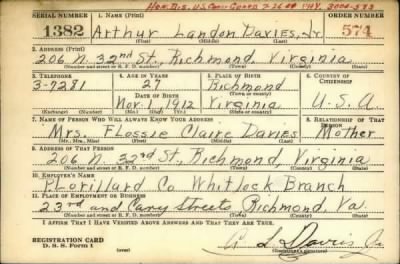 Hon. Dis. U.S. Coast Guard
SERIAL NUMBER 1. NAME (Print) ORDER NUMBER
1382 Arthur Landon Davies, Jr. 574
(First) (Middle) (Last)
2. ADDRESS (Print)
206 N. 32nd St., Richmond Virginia
(Number and street or R. F. D. number) (Town) (County) (State)
3. TELEPHONE 4. AGE IN YEARS 5. PLACE OF BIRTH 6. COUNTRY OF CITIZENSHIP
3-7281 27 Richmond
DATE OF BIRTH (Town or county)
Nov. 1, 1912 Virginia U.S.A.
(Exchange) (Number) (Mo.) (Day) (Yr.) (State or country)
7. NAME OF PERSON WHO WILL ALWAYS KNOW YOUR ADDRESS 8. RELATIONSHIP OF THAT PERSON
Mrs. Flossie Claire Davies Mother
(Mr., Mrs., Miss) (First) (Middle) (Last)
9. ADDRESS OF THAT PERSON
206 N. 32nd St., Richmond, Virginia
(Number and street or R. F. D. number) (Town) (County) (State)
10. EMPLOYER'S NAME
P. Lorillard Co. Whitlock Branch
11. PLACE OF EMPLOYMENT OR BUSINESS
23rd and Cary Streets, Richmond, Va.
(Number and street or R. F. D. number) (Town) (County) (State)
I AFFIRM THAT I HAVE VERIFIED ABOVE ANSWERS AND THAT THEY ARE TRUE.
REGISTRATION CARD
D. S. S. Form 1
A L Davies Jr.
(Registrant's signature)